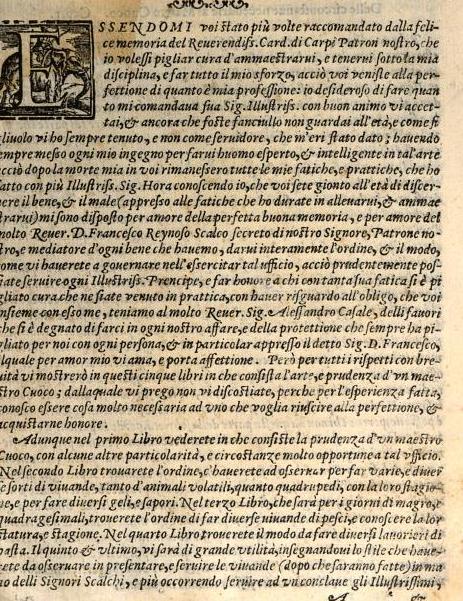 ESSENDOMI voi stato più volte raccomandato dalla feli-
ce memoria del Reuerendiss. Card. di Carpi Patron nostro, che
io volessi pigliar cura d'ammaestrarui, e tenerui sotto la mia
disciplina, e far tutto il mio sforzo, acciò voi veniste alla per-
fettione di quanto è mia professione: io desideroso di fare quan
to mi comandaua sua Sig. Illustriss. con buon animo vi accet-
tai, & ancora che foste fanciullo non guardai all'età, e come fi
gliuolo vi ho sempre tenuto, e non come seruidore, che m'eri stato dato; hauendo
empre messo ogni mio ingegno per farui huomo esperto, & intelligente in tal'arte
acciò dopo la morte mia in voi rimanessero tutte le mie fatiche, e prattiche, che ho
fatto con più Illustriss. Sig. Hora conoscendo io, che voi sete gionto all'età di discer-
nere il bene, & il male (appresso alle fatiche che ho durate in alleuarui, & ammae
strarui) mi sono disposto per amore della perfetta buona memoria, e per amore del
molto Reuer. D. Francesco Reynoso Scalco secreto di nostro Signore, Patrone no-
stro, e mediatore d'ogni bene che hauemo, darui interamente l'ordine, & il modo,
come vi hauerete a gouernare nell'essercitar tal ufficio, acciò prudentemente pos-
siate seruire ogni Illustriss. Prencipe, e far honore a chi con tanta sua fatica si è pi
gliato cura che ne siate venuto in prattica, con hauer risguardo all'obligo, che voi
insieme con esso me, teniamo al molto Reuer. Sig. Alessandro Casale, delli fauori
che si è degnato di farci in ogni nostro affare, e della protettione che sempre ha pi-
gliato per noi con ogni persona, & in particolar appresso il detto Sig. D. Francesco,
ilquale per amor mio vi ama, e porta affettione. Però per tutti i rispetti con bre-
uità vi mostrerò in questi cinque libri in che consista l'arte, e prudenza d'vn mae-
stro Cuoco; dallaquale vi prego non vi discostiate, perche per l'esperienza fatta,
conosco essere cosa molto necessaria ad vno che voglia riuscire alla perfettione, &
acquistarne honore.
Adunque nel primo Libro vederete in che consiste la prudenza d'vn maestro
Cuoco, con alcune altre particolarità, e circostanze molto opportune a tal vfficio.
Nel secondo Libro trouarete l'ordine, c'hauerete ad osseruar per far varie, e diuer
se sorti di viuande, tanto d'animali volatili, quanto quadrupedi, con la loro stagio-
ne, e per fare diuersi geli, e sapori. Nel terzo Libro, che sarà per i giorni di magro, e
quadragesimali, trouerete l'ordine di far diuerse uiuande di pesci, e conoscere la lor
statura, e stagione. Nel quarto Libro trouerete il modo da fare diuersi lauorieri di
pasta. Il quinto & vltimo, vi sarà di grande vtilità, insegnandoui lo stile che haue-
rete da osseruare in presentare, e seruire le viuande (dopo che saranno fatte) in ma
no delli Signori Scalchi, e più occorrendo seruire ad vn conclaue gli Illustrissimi,